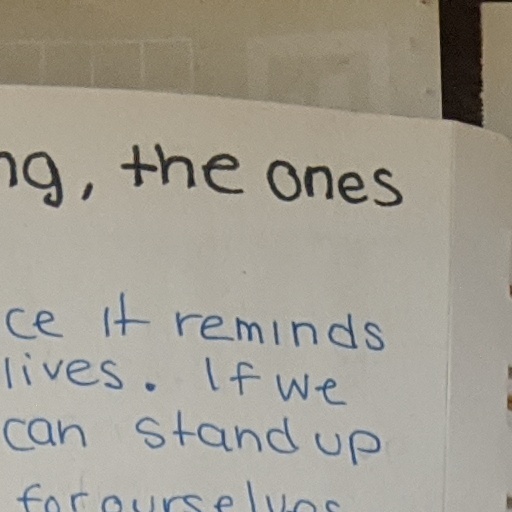 ng, the ones
ce it reminds
lives. If we
can stand up
for ourselves